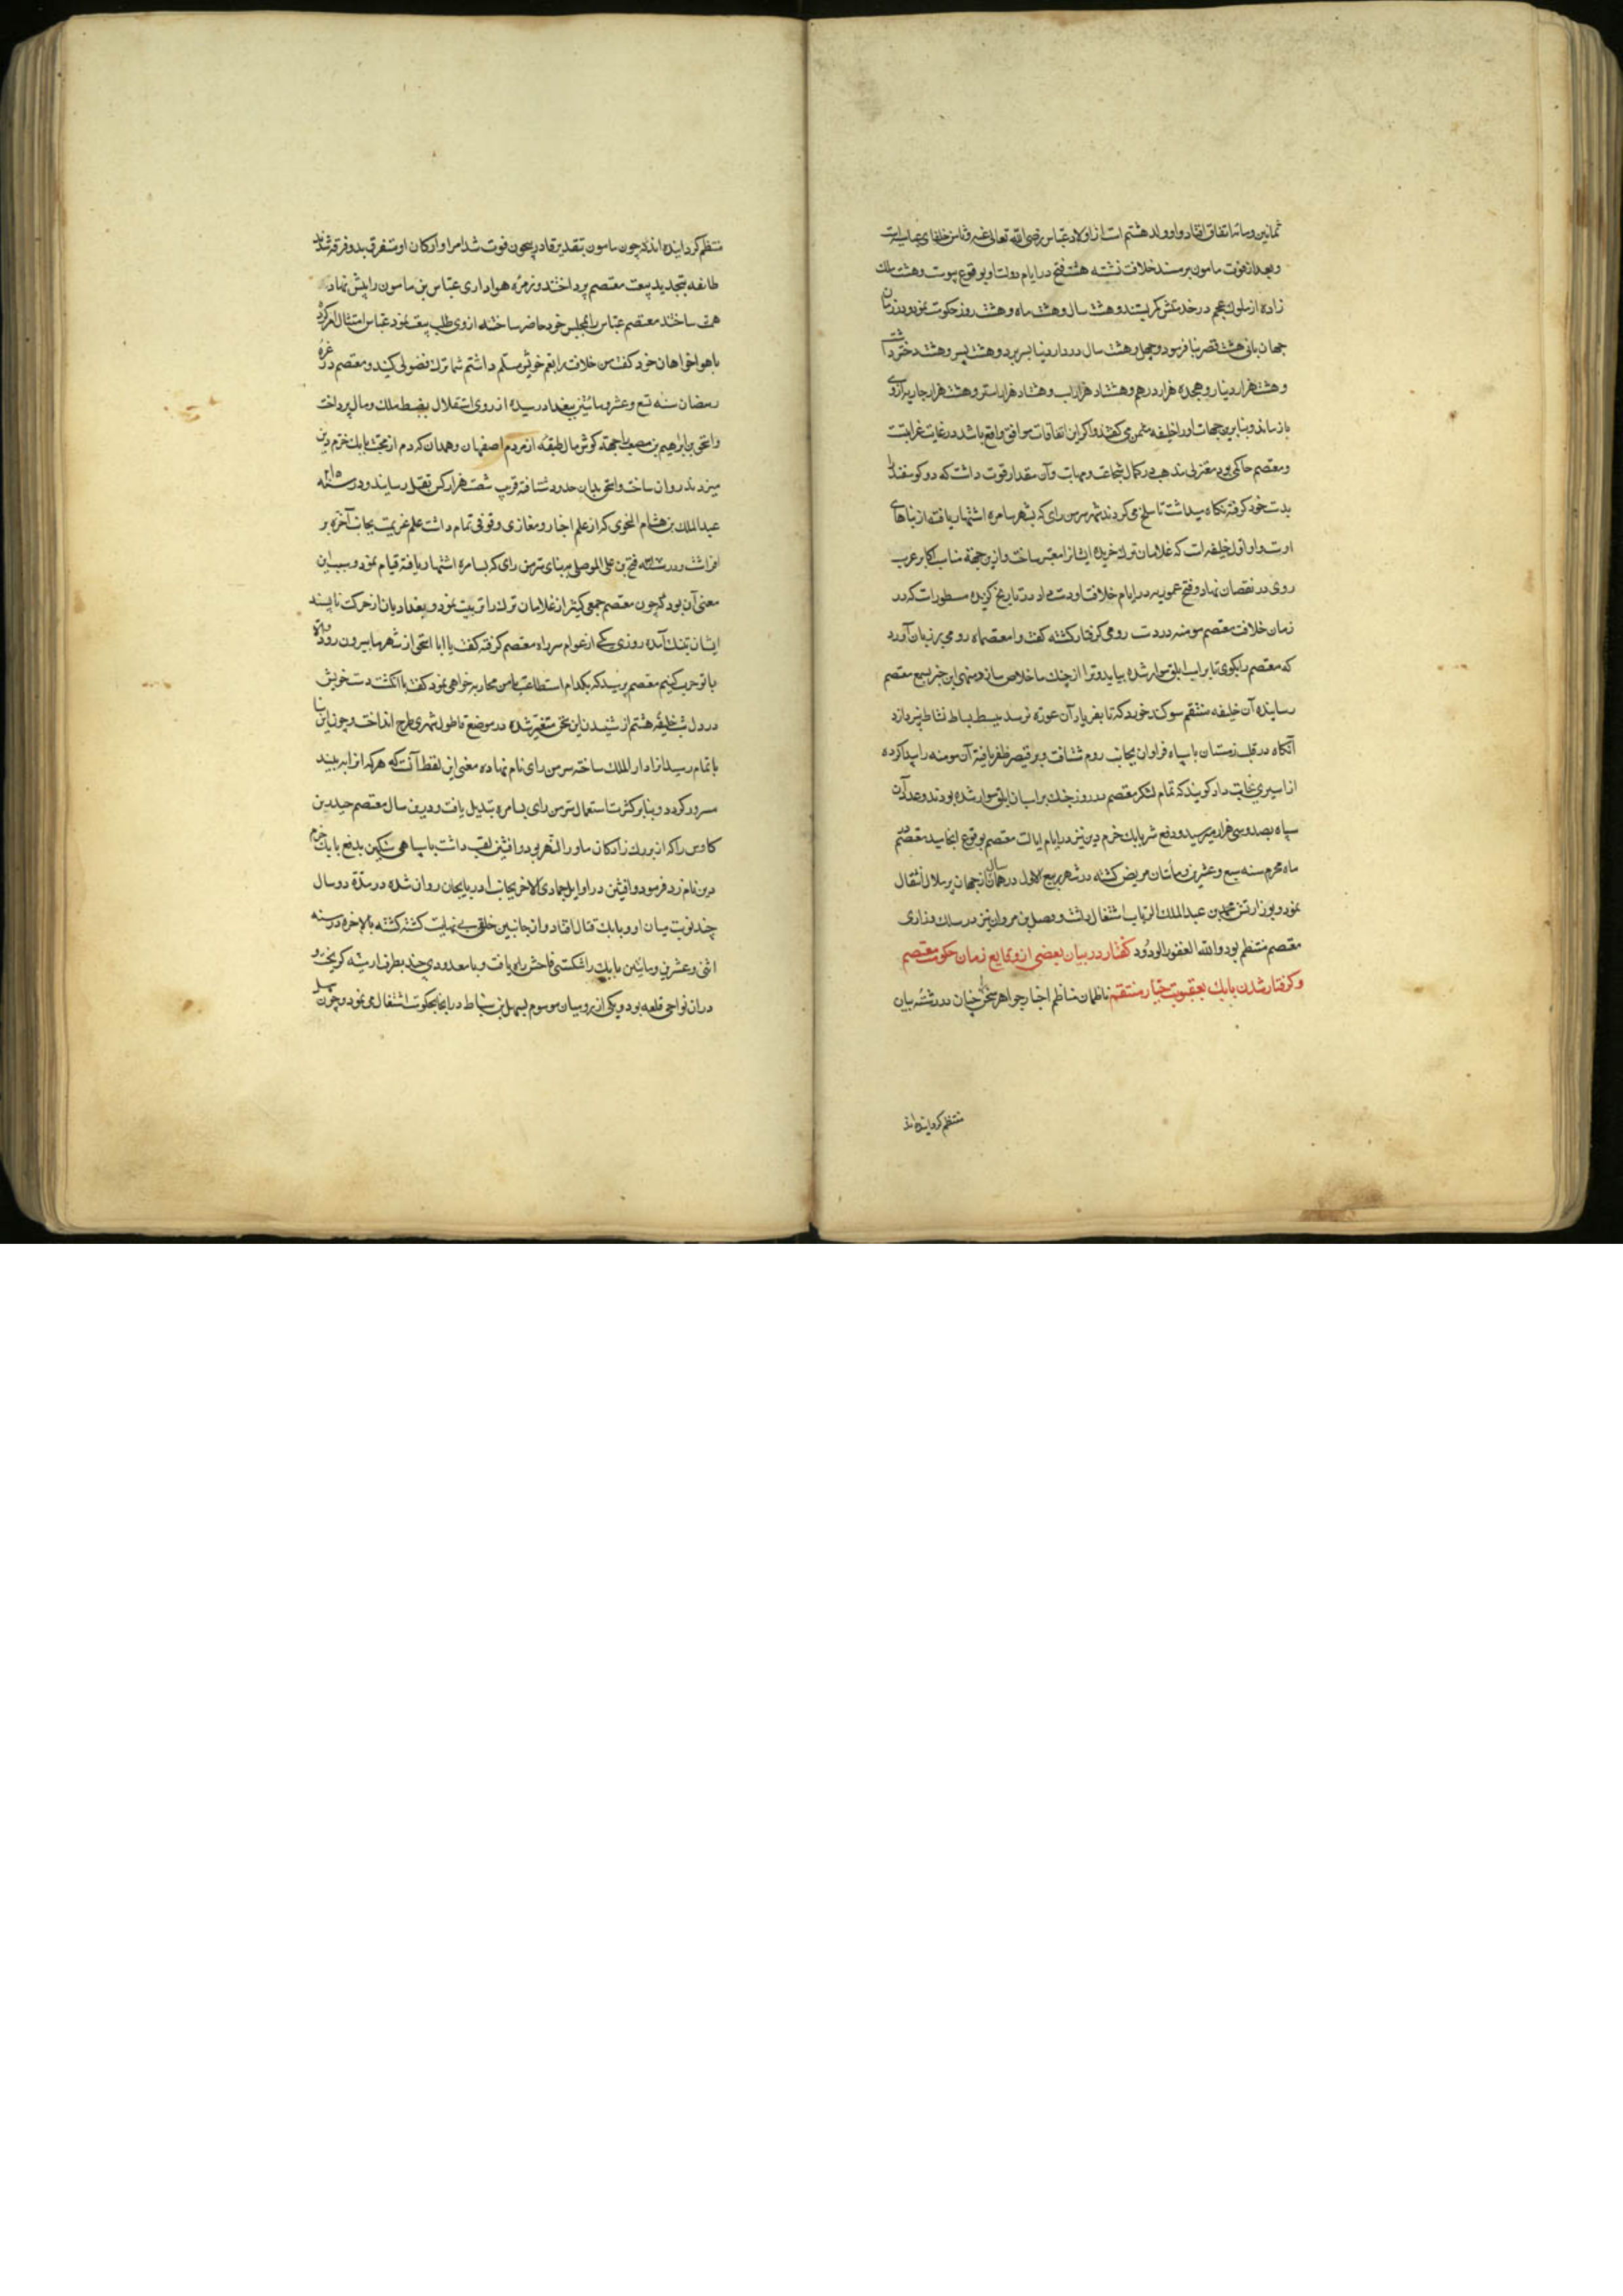 ثمانین و مائه اتفاق افتاد و او ولد هشتم است از اولاد عباس رضی الله تعالی عنه و ثامن خلفای عباسیه است
و بعد از فوت مامون بر مسند خلافت نشسته هشت فتح در ایام دولت او بوقوع پیوست و هشت ملک
زاده از ملوک عجم در خدمتش کمر بستند و هشت سال و هشت ماه و هشت روز حکومت نمود و در زمان
جهانبانی هشت قصر بنا فرمود و چهل و هشت سال در دار دنیا بسر برد و هشت پسر و هشت دختر داشت
و هشت هزار دینار و هجده هزار درهم و هشتاد هزار اسب و هشتاد هزار استر و هشت هزار جاریه از وی
باز ماند و بنابرین جهات او را خلیفه مثمن می گفتند و اگر این اتفاقات موافق واقع باشد در غایت غرابتست
و معتصم حاکمی بود معتزلی مذهب در کمال شجاعت و مهابت و آن مقدار قوت داشت که دو کوسفند را
بدست خود کرفته نگاه میداشت تا سلخ می کردند شهر سر من رای که بشهر سامره اشتهار یافته از بناهای
اوست و او اول خلیفه است که غلامان ترک خریده ایشانرا معتبر ساخت و ازین جهة مناسب اکابر عرب
روی در نقصان نهاد و فتح عموریه در ایام خلافت او دست داد در تاریخ کزیده مسطورست که در
زمان خلافت معتصم مومنه در دست رومی کرفتار کشته کفت وا معتصماه رومی بر زبان آورد
که معتصم را بکوی تا بر اسب ابلق سوار شده بیاید و ترا از چنک ما خلاص سازد و منهی این خبر بسمع معتصم
رسانیده آن خلیفه منتقم سوکند خورد که تا بفریاد آن عورة نرسد ببسط بساط نشاط نپردازد
آنکاه در قلب زمستان با سپاه فراوان بجانب روم شتافت و بر قیصر ظفر یافته آن مومنه را پیدا کرده
از اسیری نجات داد کویند که تمام لشکر معتصم در روز جنک بر اسبان ابلق سوار شده بودند و عدد آن
سپاه بصد و سی هزار میرسید و دفع شر بابک خرم دین نیز در ایام ایالت معتصم بوقوع انجامید معتصم در
ماه محرم سنه سبع و عشرین و مأتان مریض کشته در شهر ربیع الاول در همان سال از جهان پر ملال انتقال
نمود و بوزارتش محمد بن عبد الملک الزیات اشتغال داشت و فضل بن مروان نیز در سلک وزاری
معتصم منتظم بود والله الغفور الودود کفتار در بیان بعضی از وقایع زمان حکومت معتصم
و کرفتار شدن بابک بعقوبت جبار منتقم ناظمان مناظم اخبار جواهر سخن را چنان در رشته بیان
منتظم کردانیده اند
منتظم کردانیده اند که چون مامون بتقدیر قادر بیچون فوت شد امرا و ارکان او متفرق بدو فرقه شدند
طائفه بتجدید بیعت معتصم پرداختند و زمره هواداری عباس بن مامون را پیش نهاد
همت ساختند معتصم عباس را بمجلس خود حاضر ساخته از وی طلب بیعت نمود عباس امتثال امر کرد
با هواخواهان خود کفت من خلافت را بعم خویش مسلم داشتم شما ترک فضولی کنید و معتصم در غره
رمضان سنه تسع و عشر و مائتین ببغداد رسیده از روی استقلال بضبط ملک و مال پرداخت
و اسحق بن ابراهیم بن مصعب را جهة کوش مال طبقه از مردم اصفهان و همدان که دم از محبت بابک خرم دین
میزدند روان ساخت و اسحق بدان حدود شتافته قریب شصت هزار کس بقتل رسانید و در سنه ۲۱۸
عبد الملک بن هشام النحوی که از علم اخبار و مغازی وقوفی تمام داشت علم عزیمت بجانب آخرة بر
افراشت و در سنه فتح بن علی الموصلی ببنای سر من رای که بسامره اشتهار یافته قیام نمود و سبب این
معنی آن بود که چون معتصم جمعی کثیر از غلامان ترک را تربیت نمود و بغدادیان از حرکت ناپسند
ایشان بتنک آمده روزی یکی از عوام سر راه معتصم کرفته کفت یا ابا اسحق از شهر ما بیرون رو و الا
با تو حرب کنیم معتصم پرسید که بکدام استطاعت با من محاربه خواهی نمود کفت با انکشت دست خویش
در دل شب خلیفه هشتم از شنیدن این سخن متغیر شده در موضع قاطول شهری طرح انداخت و چون این بنا
باتمام رسید انرا دار الملک ساخته سر من رای نام نهاده معنی این لفظ آنست که هر که انرا به بیند
مسرور کردد و بنابر کثرت استعمال سر من رای بسامره تبدیل یافت و درین سال معتصم حیدر بن
کاوس را که از بزرک زادکان ماوراء النهر بود و افشین لقب داشت با سپاهی سنکین بدفع بابک خرم
دین نام زد فرمود و افشین در اوایل جمادی الاخر بجانب اذربایجان روان شده در مدة دو سال
چند نوبت میان او و بابک قتال افتاد و از جانبین خلقی بی نهایت کشته کشته بالاخره در سنه
اثنی و عشرین و مایتین بابک را شکستی فاحش راه یافت و با معدودی چند بطرف ارمنیه کریخت و
در ان نواحی قلعه بود و یکی از رومیان موسوم بسهل بن سنباط در انجا بحکومت اشتغال می نمود و چون سهل